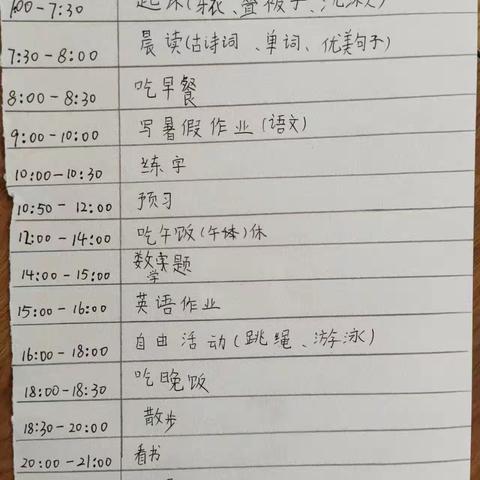 7:30 起床(穿衣、叠被子、洗漱)
7:30-8:00 晨读(古诗词、单词、优美句子)
8:00-8:30 吃早餐
9:00-10:00 写暑假作业(语文)
10:00-10:30 练字
10:50-12:00 预习
12:00-14:00 吃午饭(午体)休
14:00-15:00 数学实题
15:00-16:00 英语作业
16:00-18:00 自由活动(跳绳、游泳)
18:00-18:30 吃晚饭
18:30-20:00 散步
20:00-21:00 看书